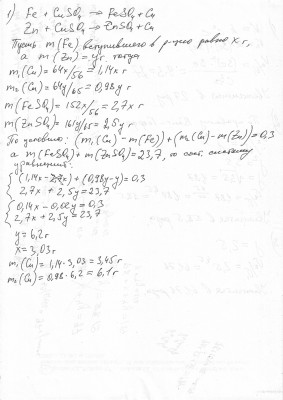 1) Fe + CuSO4 → FeSO4 + Cu
Zn + CuSO4 → ZnSO4 + Cu
Пусть m(Fe) вступившего в р-цию равно x г,
а m(Zn) = y г, тогда
m1(Cu) = 64x/56 = 1,14x г
m2(Cu) = 64y/65 = 0,98y г
m(FeSO4) = 152x/56 = 2,7x г
m(ZnSO4) = 161y/65 = 2,5y г
По условию: (m1(Cu) - m(Fe)) + (m2(Cu) - m(Zn)) = 0,3
а m(FeSO4) + m(ZnSO4) = 23,7, то сост. систему
уравнений:
(1,14x - x) + (0,98y - y) = 0,3
2,7x + 2,5y = 23,7
0,14x - 0,02y = 0,3
2,7x + 2,5y = 23,7
y = 6,2 г
x = 3,03 г
m1(Cu) = 1,14 · 3,03 = 3,45 г
m2(Cu) = 0,98 · 6,2 = 6,1 г